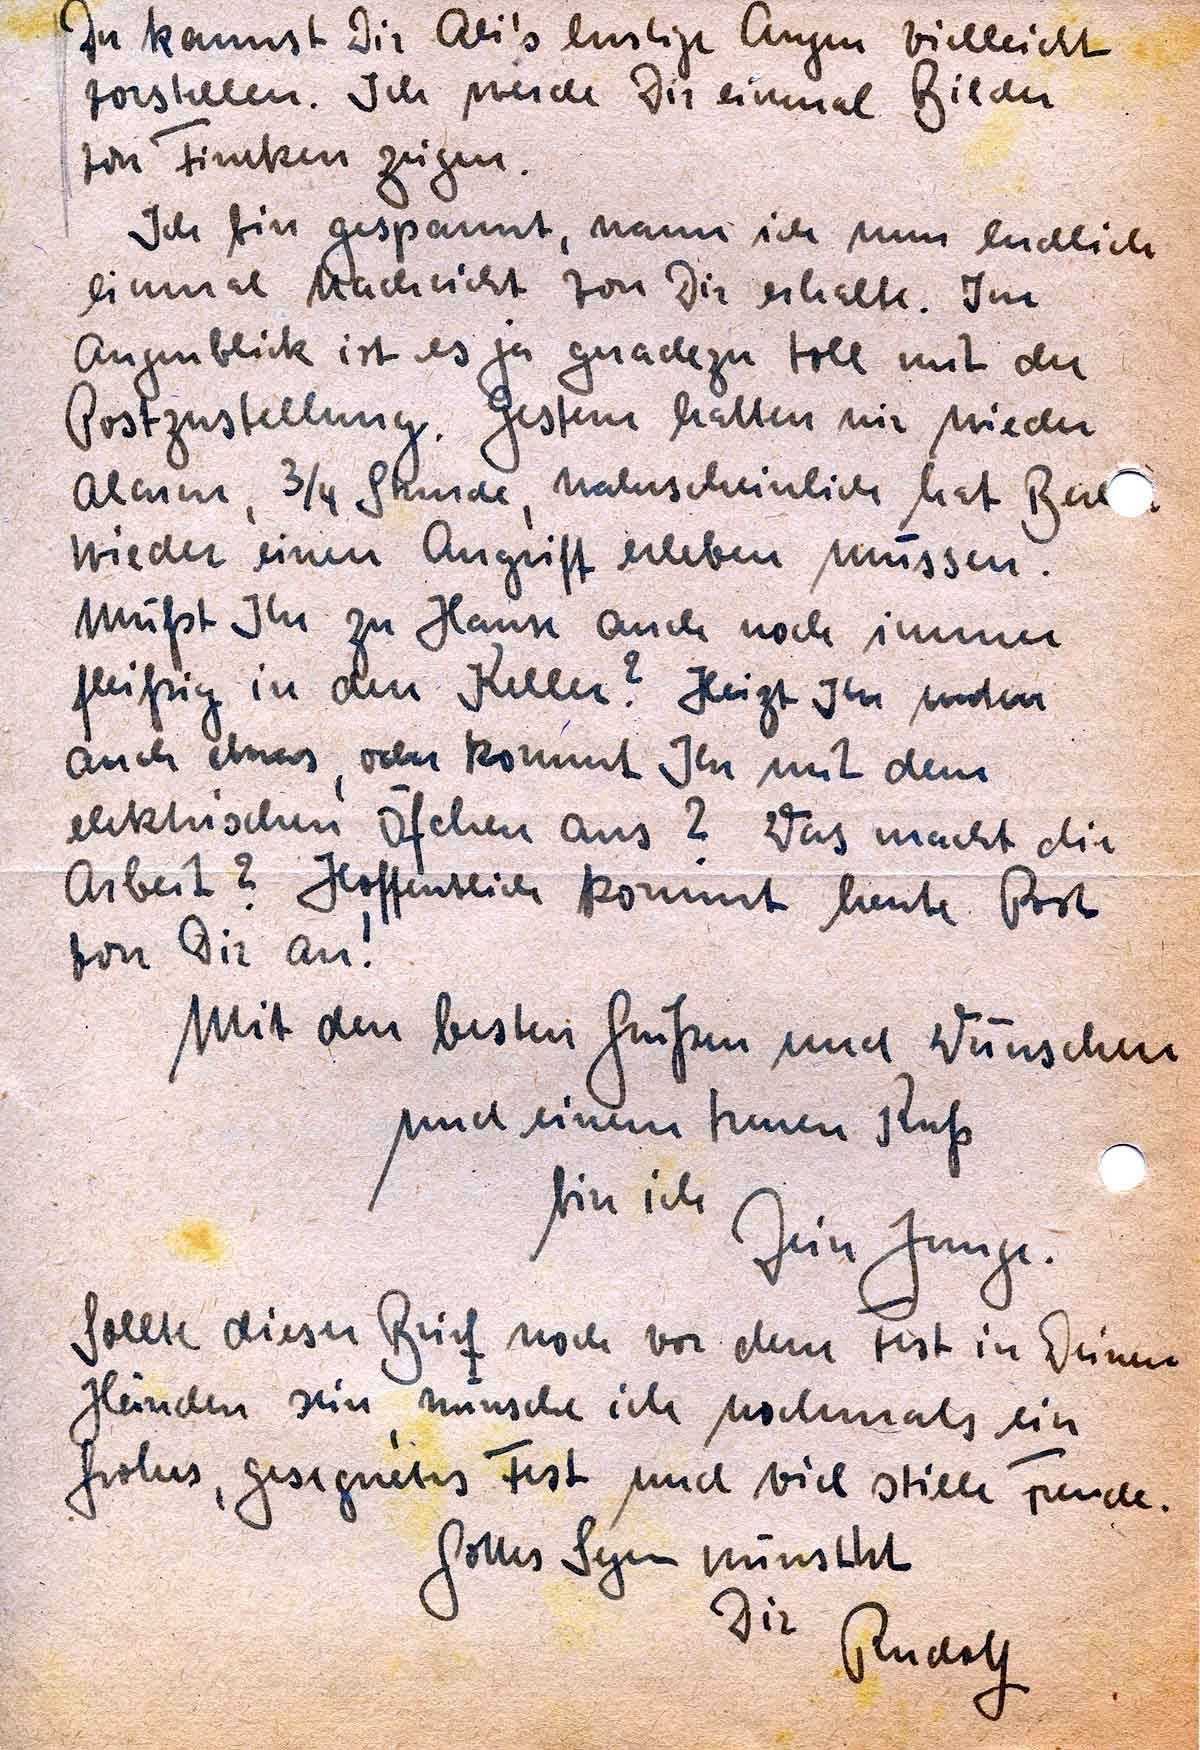 Du kannst Dir Ali's lustige Augen vielleicht
vorstellen. Ich werde Dir einmal Bilder
von Finken zeigen.
Ich bin gespannt, wann ich nun endlich
einmal Nachricht von Dir erhalte. Im
Augenblick ist es ja geradezu toll mit der
Postzustellung. Gestern hatten wir wieder
Alarm, 3/4 Stunde, wahrscheinlich hat Berlin
wieder einen Angriff erleben müssen.
Müßt Ihr zu Hause auch noch immer
fleißig in den Keller? Heizt Ihr unten
auch etwas, oder kommt Ihr mit dem
elektrischen Öfchen aus? Was macht die
Arbeit? Hoffentlich kommt heute Post
von Dir an!
Mit den besten Grüßen und Wünschen
und einem treuen Kuß
bin ich
Dein Junge.
Sollte dieser Brief noch vor dem Fest in Deinen
Händen sein, wünsche ich nochmals ein
frohes, gesegnetes Fest und viel stille Freude.
Gottes Segen wünscht
Dir Rudolf